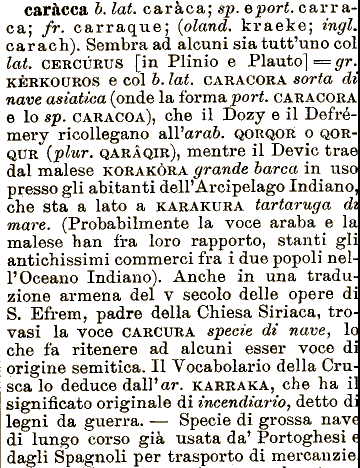 caràcca b. lat. caràca; sp. e port. carra-
ca; fr. carraque; (oland. kraeke; ingl.
carach). Sembra ad alcuni sia tutt'uno col
lat. CERCÚRUS [in Plinio e Plauto] = gr.
KÈRKOUROS e col b. lat. CARACORA sorta di
nave asiatica (onde la forma port. CARACORA
e lo sp. CARACOA), che il Dozy e il Defré-
mery ricollegano all'arab. QORQOR o QOR-
QUR (plur. QARÂQIR), mentre il Devic trae
dal malese KORAKÒRA grande barca in uso
presso gli abitanti dell'Arcipelago Indiano,
che sta a lato a KARAKURA tartaruga di
mare. (Probabilmente la voce araba e la
malese han fra loro rapporto, stanti gli
antichissimi commerci fra i due popoli nel-
l'Oceano Indiano). Anche in una tradu-
zione armena del V secolo delle opere di
S. Efrem, padre della Chiesa Siriaca, tro-
vasi la voce CARCURA specie di nave, lo
che fa ritenere ad alcuni esser voce di
origine semitica. Il Vocabolario della Cru-
sca lo deduce dall'ar. KARRAKA, che ha il
significato originale di incendiario, detto di
legni da guerra. — Specie di grossa nave
di lungo corso già usata da' Portoghesi e
dagli Spagnoli per trasporto di mercanzie